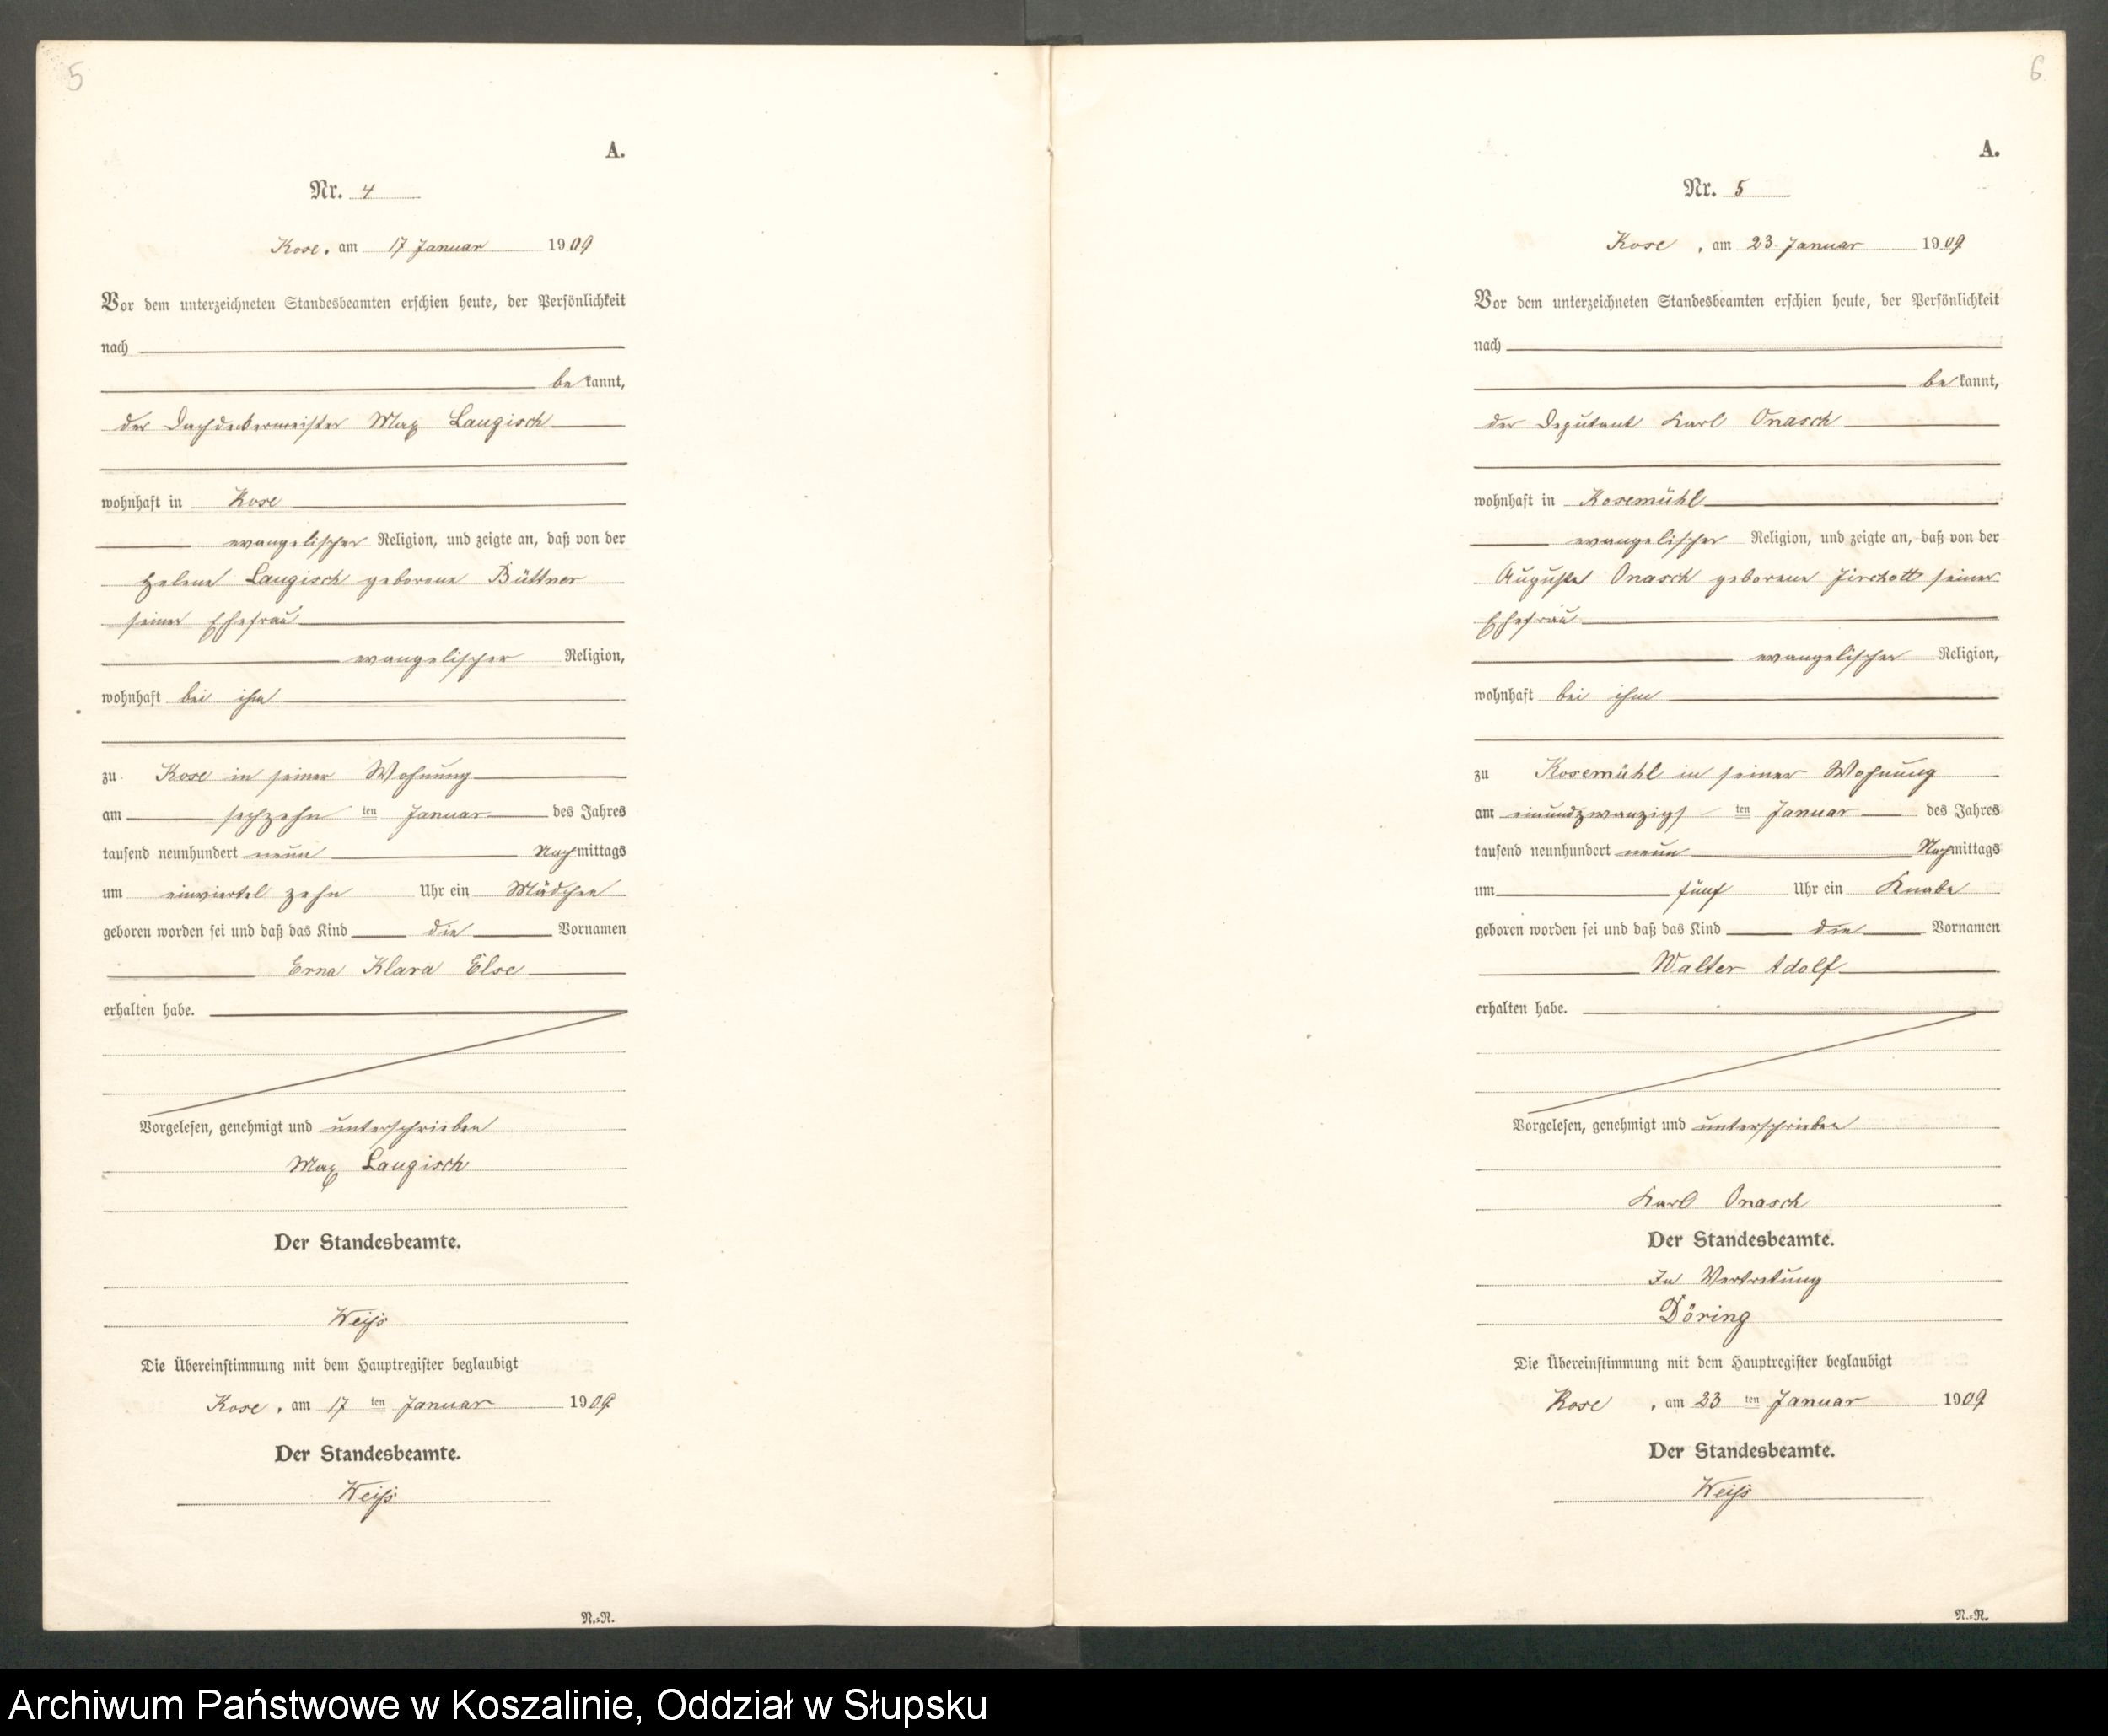 5
A.
Nr. 4
Kose, am 17 Januar 1909
Vor dem unterzeichneten Standesbeamten erschien heute, der Persönlichkeit
nach
be kannt,
der Dachdeckermeister Max Laugisch
wohnhaft in Kose
evangelischer Religion, und zeigte an, daß von der
Helene Laugisch geborene Büttner
seiner Ehefrau
evangelischer Religion,
wohnhaft bei ihm
zu Kose in seiner Wohnung
am sechzehn ten Januar des Jahres
tausend neunhundert neun Nachmittags
um einviertel zehn Uhr ein Mädchen
geboren worden sei und daß das Kind die Vornamen
Erna Klara Else
erhalten habe.
Vorgelesen, genehmigt und unterschrieben
Max Laugisch
Der Standesbeamte.
Weiß
Die Übereinstimmung mit dem Hauptregister beglaubigt
Kose, am 17 ten Januar 1909
Der Standesbeamte.
Weiß
N.=R.
6
A.
Nr. 5
Kose, am 23. Januar 1909
Vor dem unterzeichneten Standesbeamten erschien heute, der Persönlichkeit
nach
be kannt,
der Deputant Karl Onasch
wohnhaft in Kosemühl
evangelischer Religion, und zeigte an, daß von der
Auguste Onasch geborene Jirchott seiner
Ehefrau
evangelischer Religion,
wohnhaft bei ihm
zu Kosemühl in seiner Wohnung
am einundzwanzigsten Januar des Jahres
tausend neunhundert neun Nachmittags
um fünf Uhr ein Knabe
geboren worden sei und daß das Kind die Vornamen
Walter Adolf
erhalten habe.
Vorgelesen, genehmigt und unterschrieben
Karl Onasch
Der Standesbeamte.
In Vertretung
Döring
Die Übereinstimmung mit dem Hauptregister beglaubigt
Kose, am 23 ten Januar 1909
Der Standesbeamte.
Weiß
N.=R.
Archiwum Państwowe w Koszalinie, Oddział w Słupsku